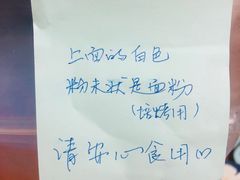 上面的白色
粉末状是面粉
(焙烤用)
请安心食用